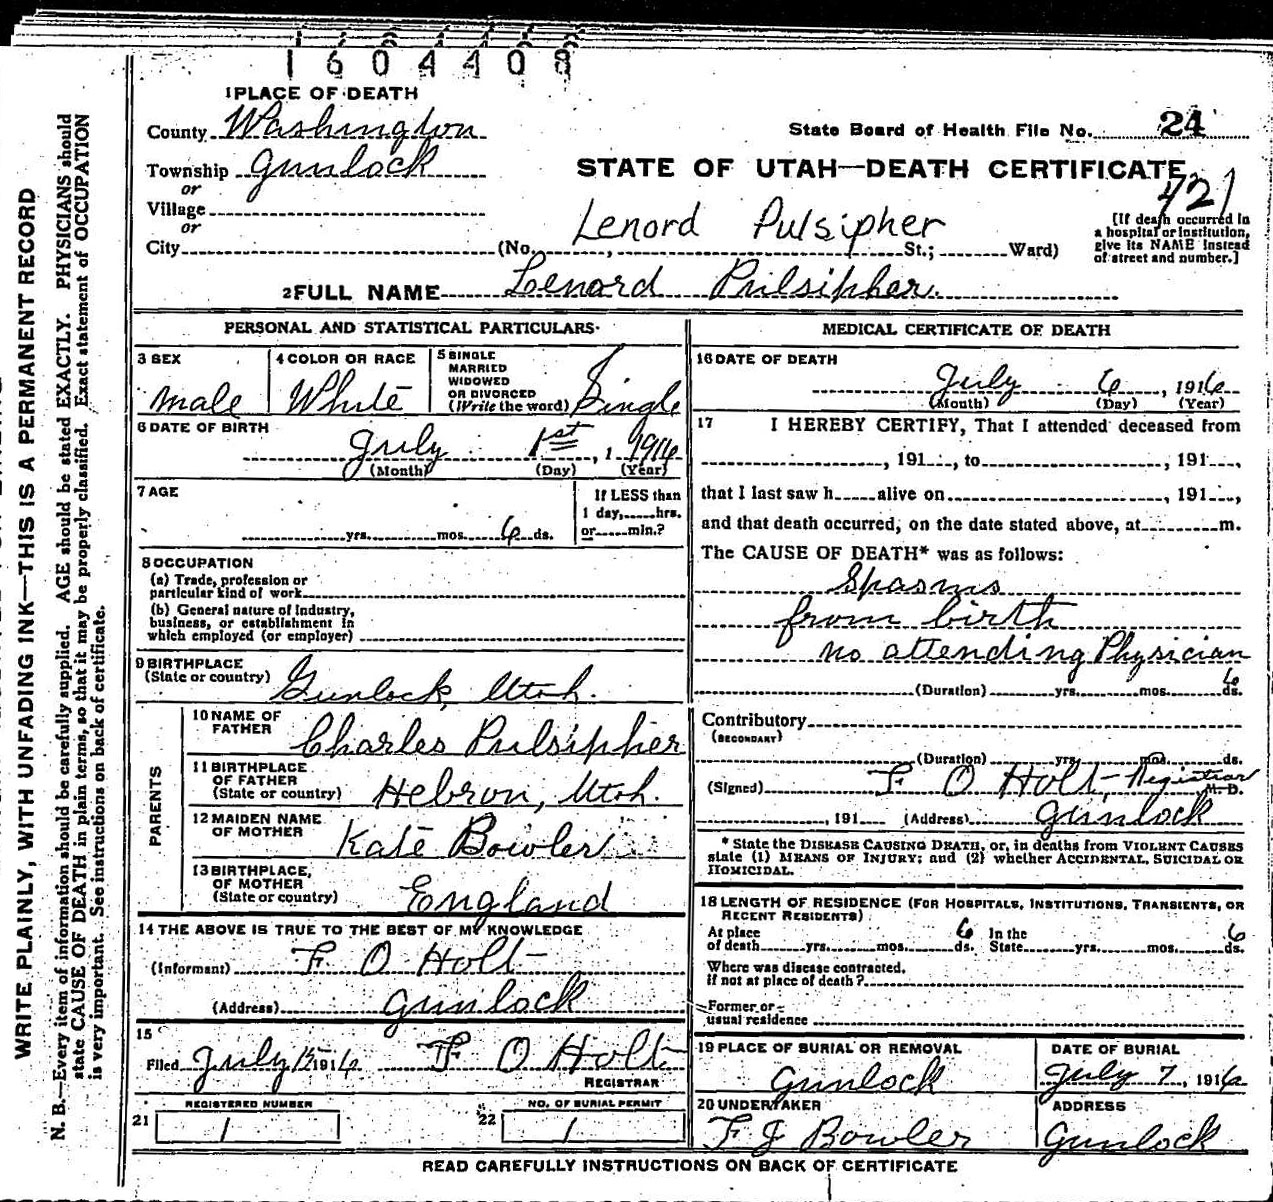 1604408
1 PLACE OF DEATH
County Washington
State Board of Health File No. 24
Township Gunlock
STATE OF UTAH—DEATH CERTIFICATE
421
or
Village
or
Lenord Pulsipher
City (No. , St.; Ward)
[If death occurred in
a hospital or institution,
give its NAME instead
of street and number.]
2 FULL NAME Lenard Pulsipher.
PERSONAL AND STATISTICAL PARTICULARS
3 SEX
male
4 COLOR OR RACE
White
5 SINGLE
MARRIED
WIDOWED
OR DIVORCED
(Write the word) Single
6 DATE OF BIRTH
July 1st, 1916
(Month) (Day) (Year)
7 AGE
yrs. mos. 6 ds.
If LESS than
1 day, hrs.
or min.?
8 OCCUPATION
(a) Trade, profession or
particular kind of work
(b) General nature of Industry,
business, or establishment in
which employed (or employer)
9 BIRTHPLACE
(State or country) Gunlock, Utah.
PARENTS
10 NAME OF
FATHER Charles Pulsipher
11 BIRTHPLACE
OF FATHER
(State or country) Hebron, Utah.
12 MAIDEN NAME
OF MOTHER Kate Bowler
13 BIRTHPLACE,
OF MOTHER
(State or country) England
14 THE ABOVE IS TRUE TO THE BEST OF MY KNOWLEDGE
(Informant) F. O Holt
(Address) Gunlock
15
Filed July 15 1916 F O Holt
REGISTRAR
REGISTERED NUMBER
21 1
NO. OF BURIAL PERMIT
22 1
MEDICAL CERTIFICATE OF DEATH
16 DATE OF DEATH
July 6, 1916
(Month) (Day) (Year)
17 I HEREBY CERTIFY, That I attended deceased from
, 191 , to , 191 ,
that I last saw h alive on , 191 ,
and that death occurred, on the date stated above, at m.
The CAUSE OF DEATH* was as follows:
Spasms
from birth
no attending Physician
(Duration) yrs. mos. 6 ds.
Contributory
(SECONDARY)
(Duration) yrs. mos. ds.
(Signed) F O Holt, Registrar M. D.
, 191 (Address) Gunlock
* State the DISEASE CAUSING DEATH, or, in deaths from VIOLENT CAUSES
state (1) MEANS OF INJURY; and (2) whether ACCIDENTAL, SUICIDAL OR
HOMICIDAL.
18 LENGTH OF RESIDENCE (FOR HOSPITALS, INSTITUTIONS, TRANSIENTS, OR
RECENT RESIDENTS)
At place
of death yrs. mos. 6 ds.
In the
State yrs. mos. 6 ds.
Where was disease contracted,
if not at place of death?
Former or
usual residence
19 PLACE OF BURIAL OR REMOVAL
Gunlock
DATE OF BURIAL
July 7, 1916
20 UNDERTAKER
F J Bowler
ADDRESS
Gunlock
READ CAREFULLY INSTRUCTIONS ON BACK OF CERTIFICATE
WRITE PLAINLY, WITH UNFADING INK—THIS IS A PERMANENT RECORD
N. B.—Every item of information should be carefully supplied. AGE should be stated EXACTLY. PHYSICIANS should
state CAUSE OF DEATH in plain terms, so that it may be properly classified. Exact statement of OCCUPATION
is very important. See instructions on back of certificate.